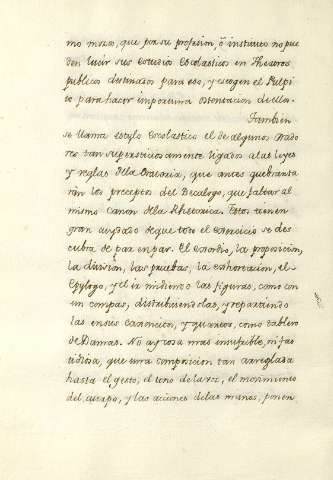 mo mozos, que por su profesion, ó instituto no pue
den lucir sus estudios Escolasticos en Theatros
publicos destinados para eso, y escogen el Pulpi
to para hacer importuna ostentacion de ellos.
Tambien
se llama estylo Escolastico el de algunos Orado
res tan supersticiosamente ligados a las leyes
y reglas dela Oratoria, que antes quebranta
rán los preceptos del Decalogo, que faltar al
mismo canon dela Rhetorica. Estos tienen
gran cuydado de que todo el exercicio se des
cubra de par en par. El exordio, la proposicion,
la division, las pruebas, la exhortacion, el
Epylogo, y el ir midiendo las figuras, como con
un compas, distribuiendolas, y repartiendo
las en sus cantoncitos, y quarteos, como tablero
de Damas. No ay cosa mas insufrible, ni fas
tidiosa, que una composicion tan arreglada
hasta el gesto, el tono de la voz, el movimiento
del cuerpo, y las acciones de las manos, ponen